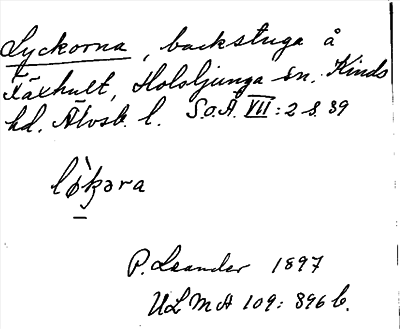 Lyckorna, backstuga å
Fäxhult, Holsljunga sn. Kinds
hd. Älvsb. l. S.O.Ä. VII: 2 s. 39
P. Leander 1897
ULMA 109: 896 b.